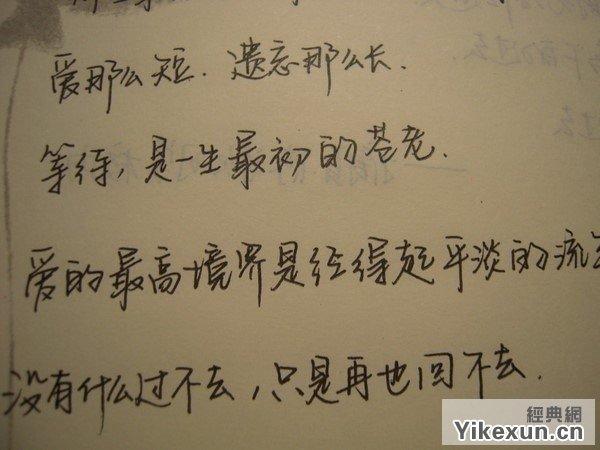 爱那么短.遗忘那么长.
等待,是一生最初的苍老.
爱的最高境界是经得起平淡的流
没有什么过不去,只是再也回不去.
經典網
Yikexun.cn